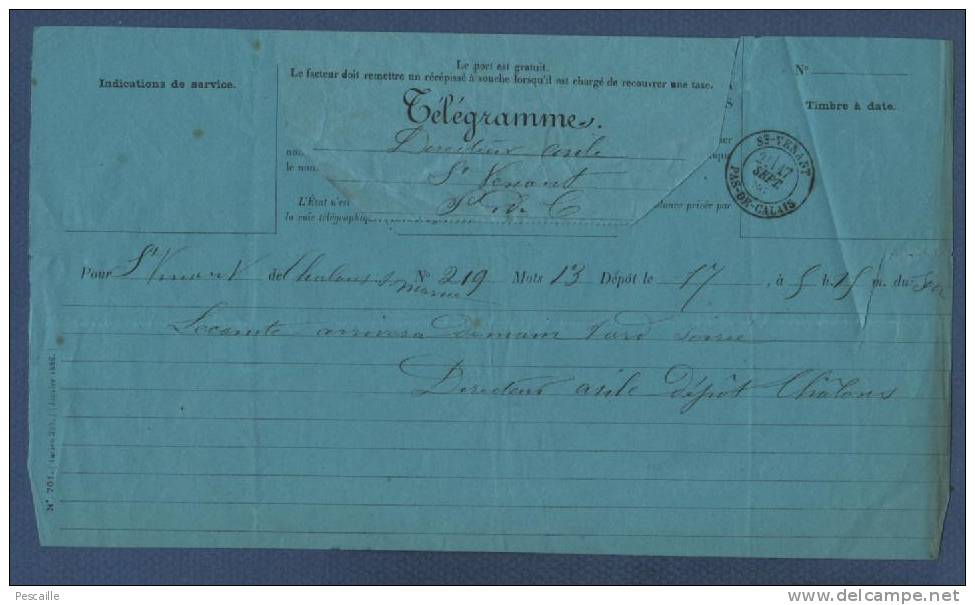 Indications de service.
Le port est gratuit.
Le facteur doit remettre un récépissé à souche lorsqu'il est chargé de recouvrer une taxe.
N°
Timbre à date.
Télégramme.
Directeur asile
le nom
St Venant
L'État n'est
P. de C
privée par
la voie télégraphique
ST-VENANT
17
SEPT.
PAS-DE-CALAIS
Pour St Venant de Chalons s Marne N° 219 Mots 13 Dépôt le 17, à 5 h. 15 m. du soir
Lecomte arrivera demain tard soirée
Directeur asile dépôt Châlons
N° 701.
Pescaille
delcampe.net